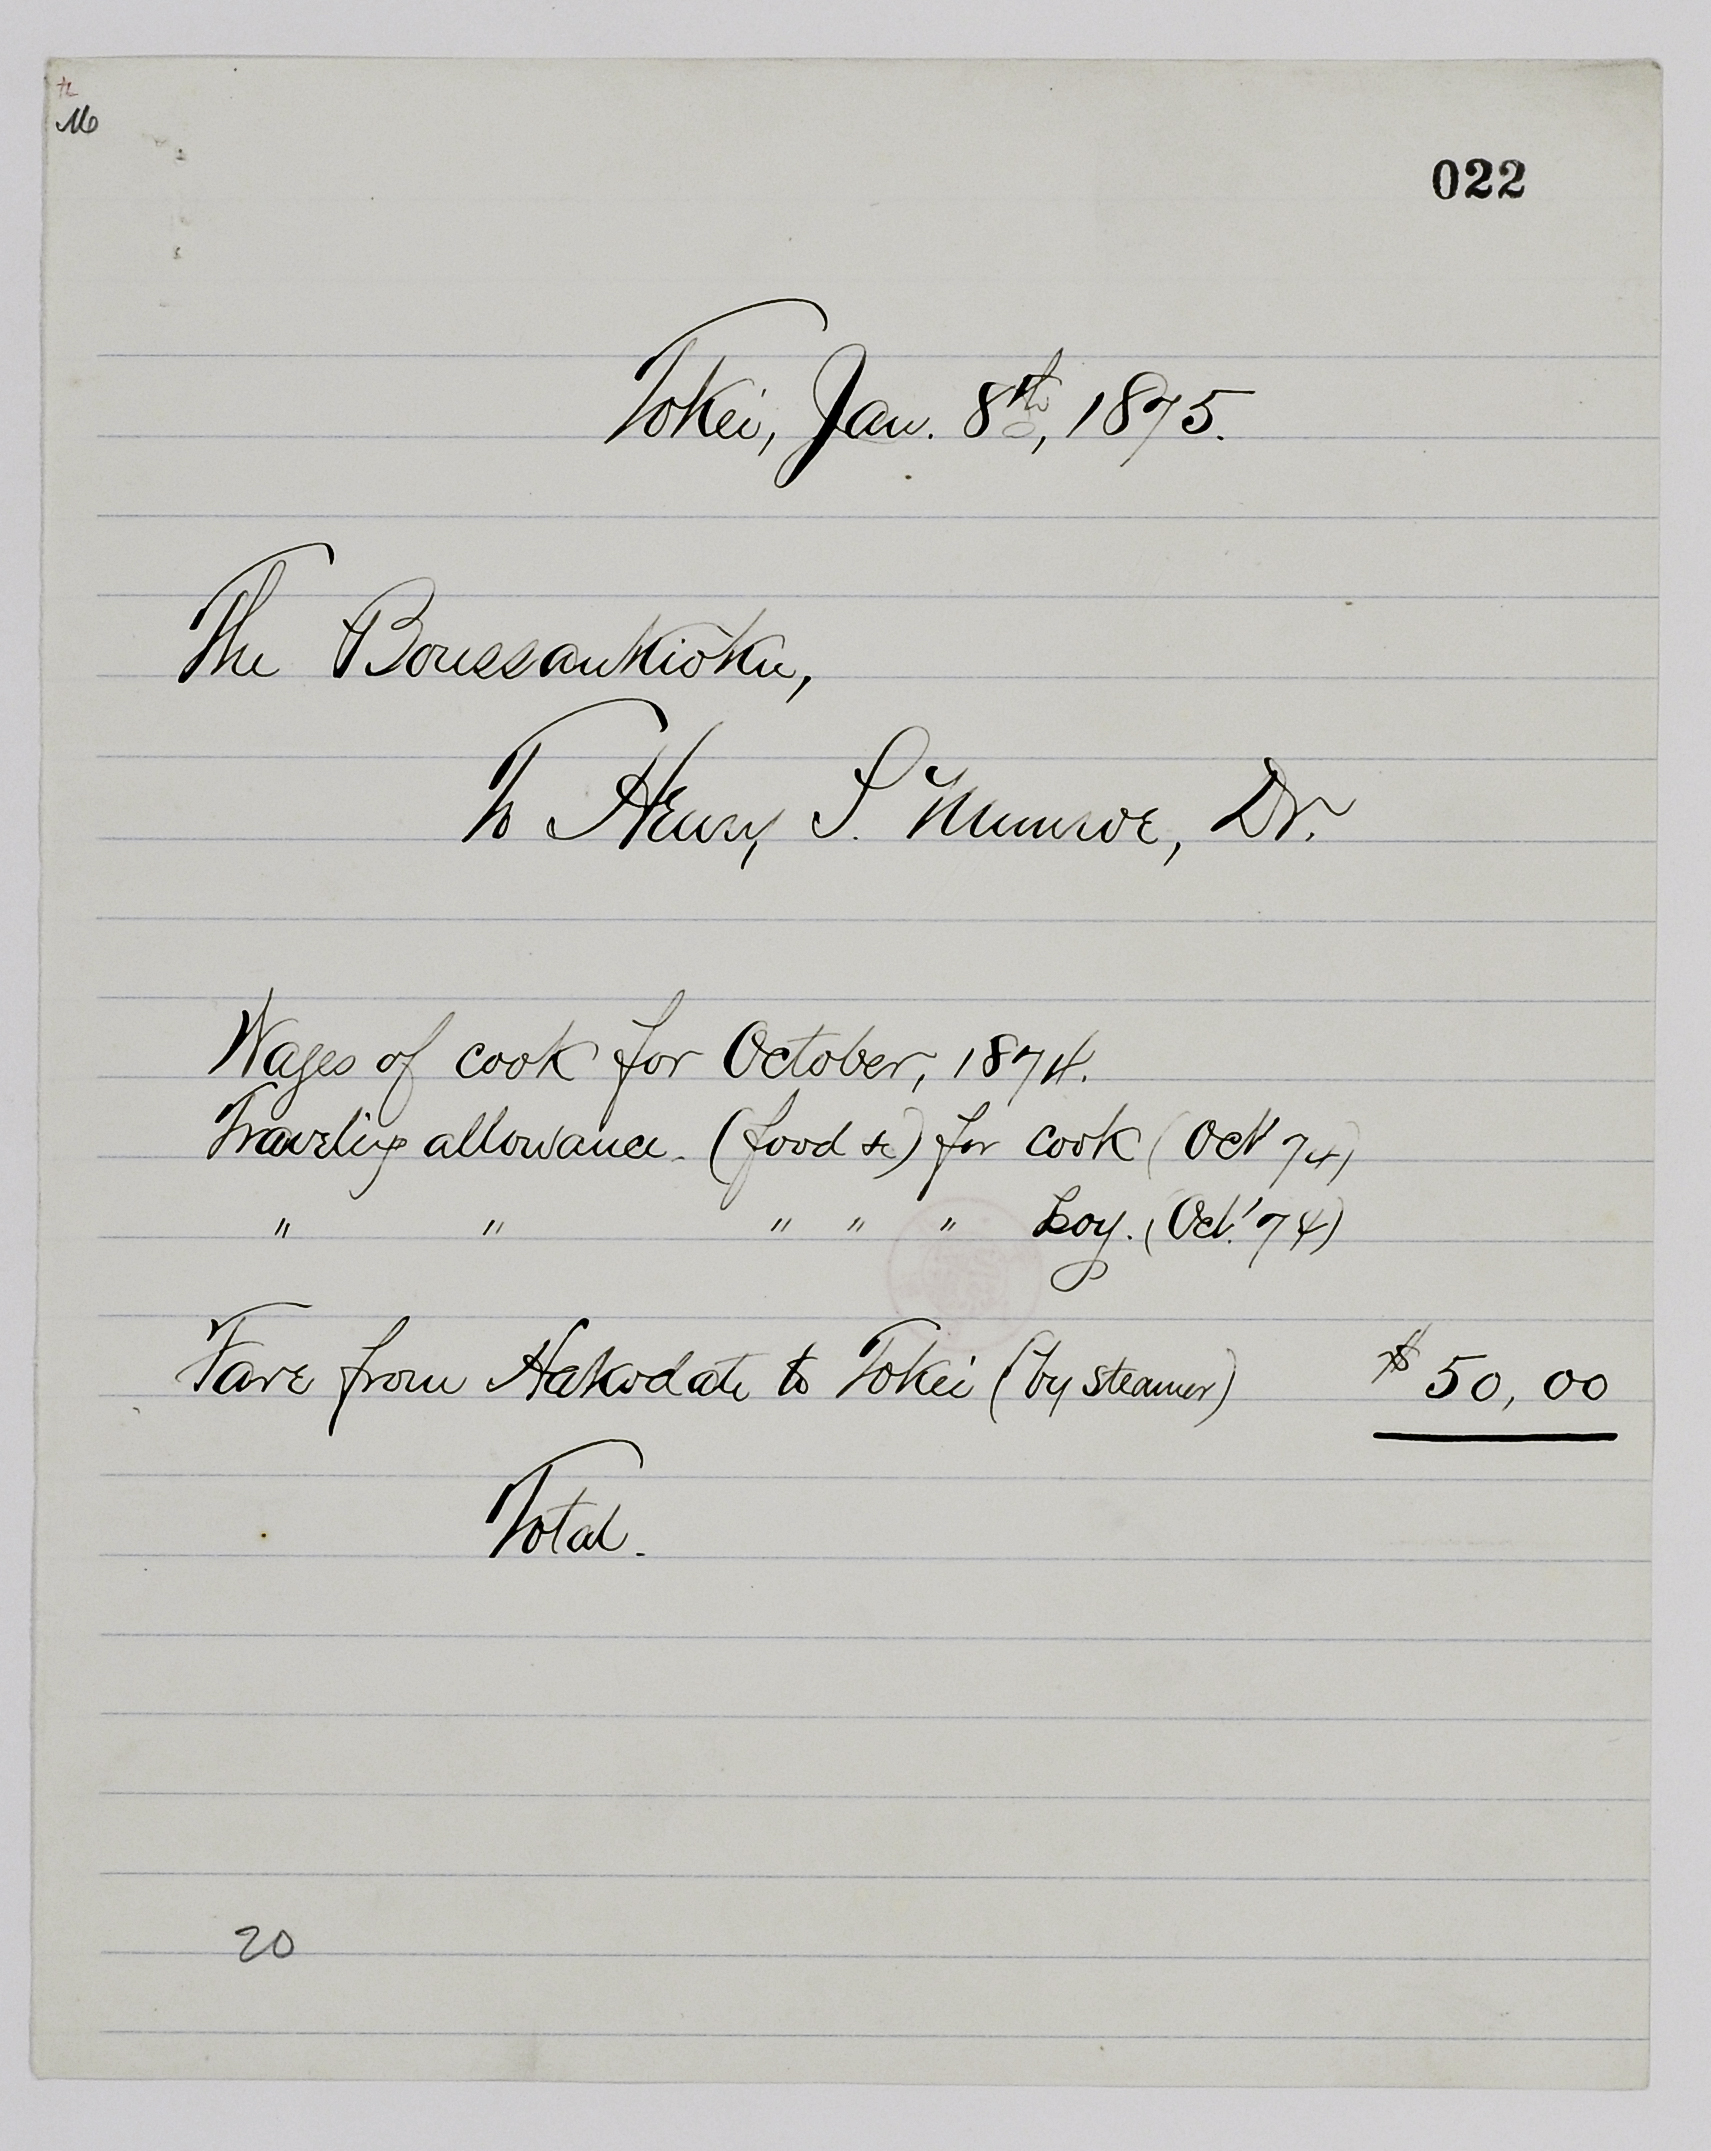 M
022
Tokei, Jan. 8th, 1875.
The Boussankioku,
To Henry S. Munroe, Dr.
Wages of cook for October, 1874.
Traveling allowance. (food &c) for cook (Oct '74)
" " " " " boy. (Oct. '74)
Fare from Hakodate to Tokei (by steamer) $50,00
Total.
20